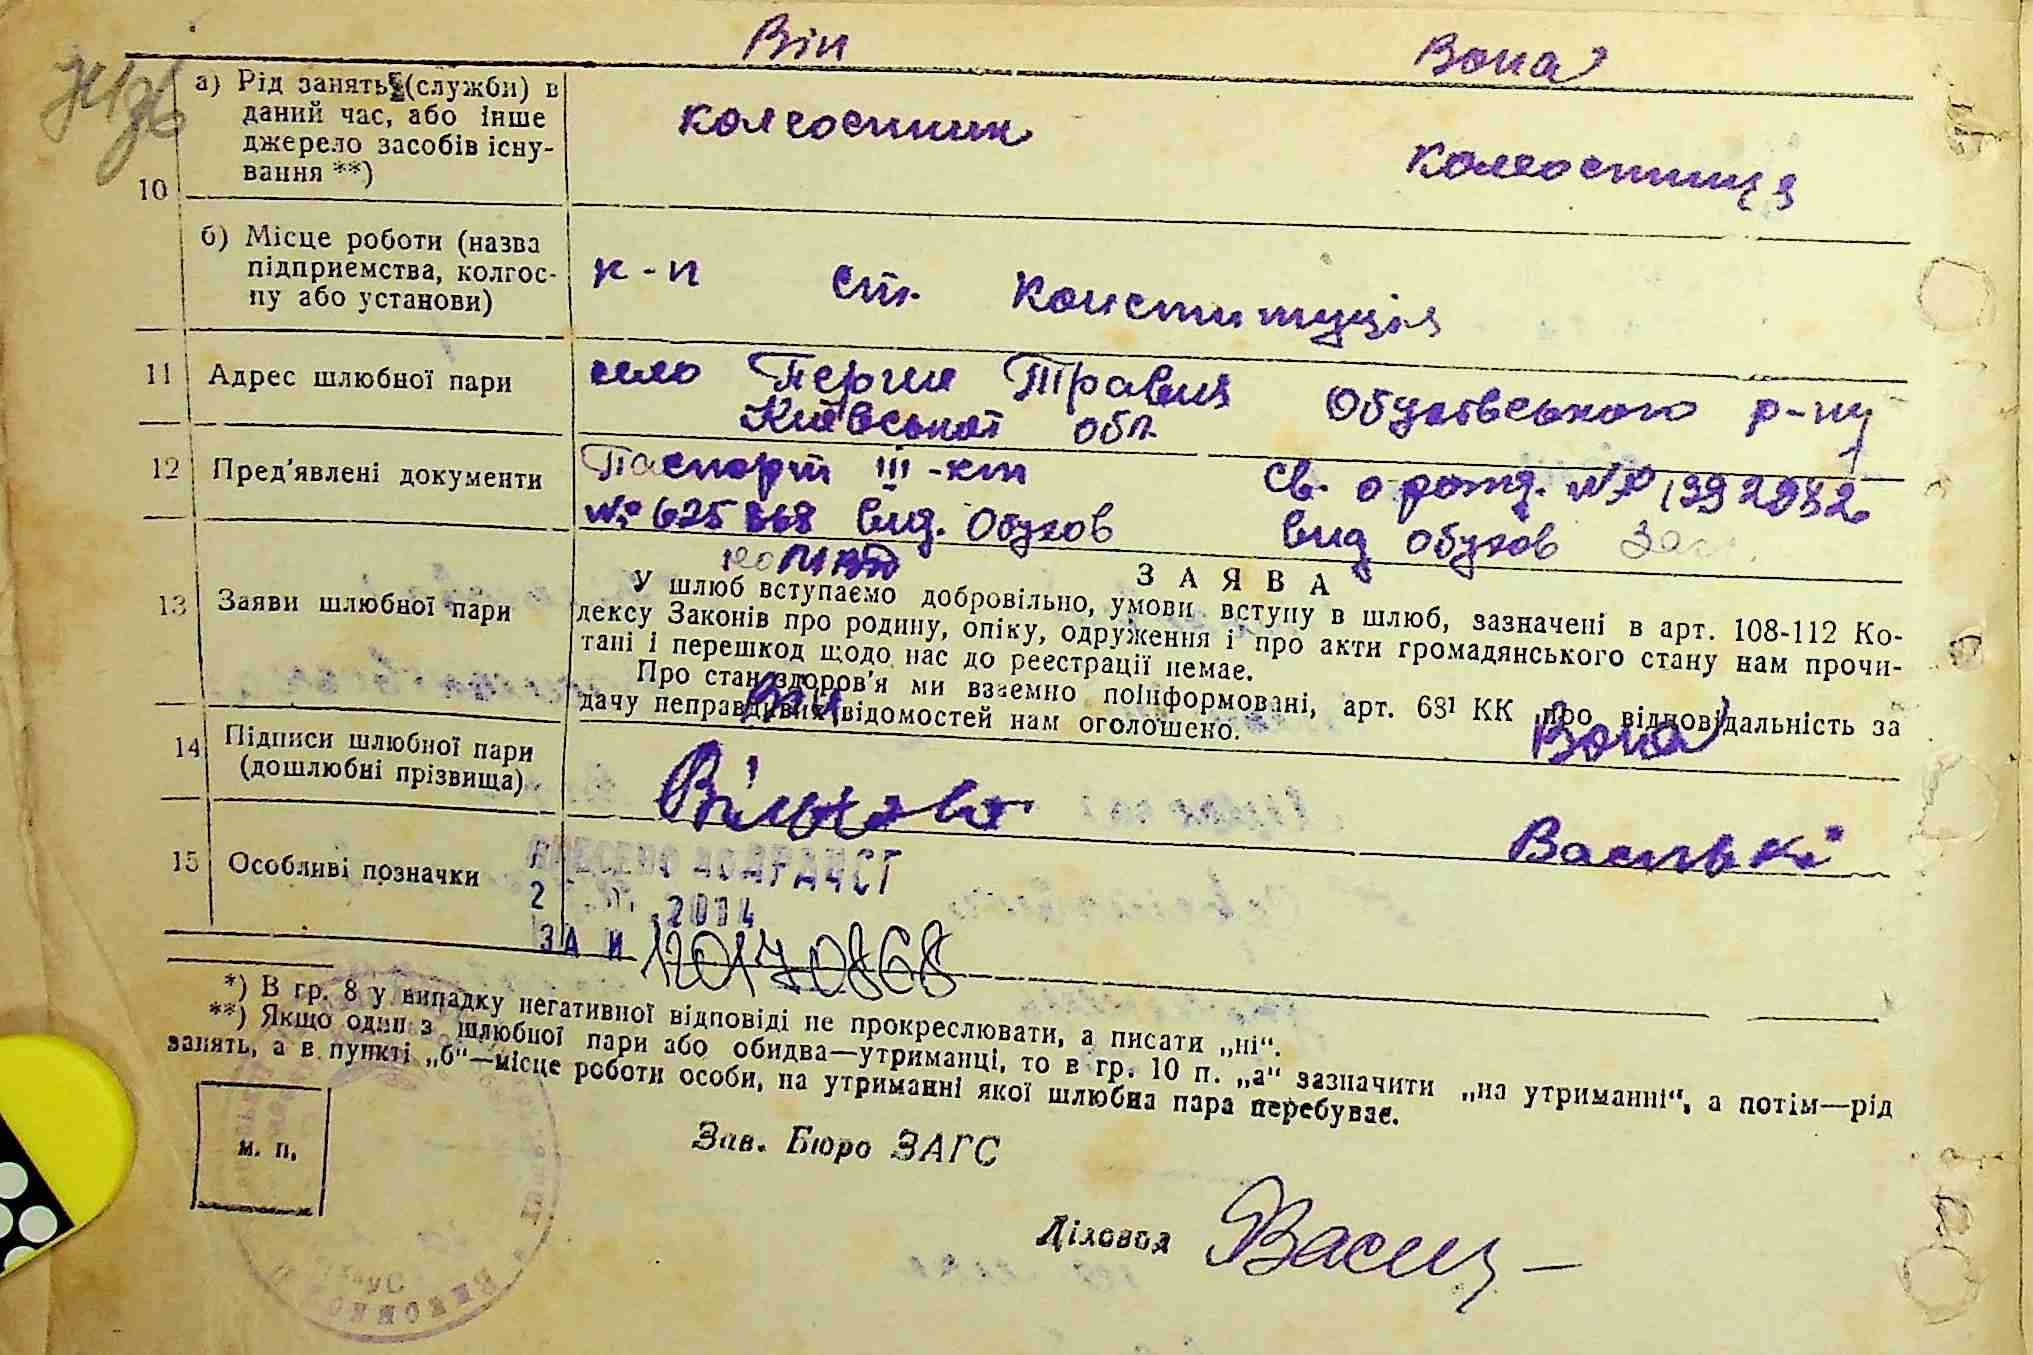 Він Вона
а) Рід занять (служби) в
даний час, або інше
джерело засобів існу-
вання **)
10
колгоспник колгоспниця
б) Місце роботи (назва
підприємства, колгос-
пу або установи)
к-п ст. Конституція
11 Адрес шлюбної пари
село Перше Травня Обухівського р-ну
Київської обл.
12 Пред'явлені документи
Паспорт III-кт Св. о рожд. №
№ вид. Обухов вид Обухов
13 Заяви шлюбної пари
ЗАЯВА
У шлюб вступаємо добровільно, умови вступу в шлюб, зазначені в арт. 108-112 Ко-
дексу Законів про родину, опіку, одруження і про акти громадянського стану нам прочи-
тані і перешкод щодо нас до реєстрації немає.
Про стан здоров'я ми взаємно поінформовані, арт. 63¹ КК про відповідальність за
дачу неправдивих відомостей нам оголошено.
Він Вона
14 Підписи шлюбної пари
(дошлюбні прізвища)
15 Особливі позначки
ВНЕСЕНО ДО ДРАЦСГ
2014
ЗА № 120170868
*) В гр. 8 у випадку негативної відповіді не прокреслювати, а писати „ні“.
**) Якщо один з шлюбної пари або обидва—утриманці, то в гр. 10 п. „а“ зазначити „на утриманні“, а потім—рід
занять, а в пункті „б“—місце роботи особи, на утриманні якої шлюбна пара перебуває.
м. п.
Зав. Бюро ЗАГС
Діловод